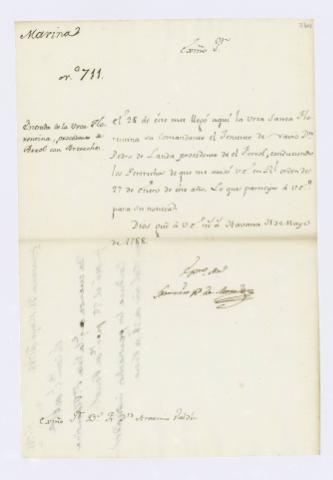 Marina
Exmo Sr.
nº 711.
Entrada de la Urca Flo-
rentina, procedente de
Ferrol con Pertrechos.
El 28 de este mes llegó aquí la Urca Santa Flo-
rentina su Comandante el Teniente de Navio Dn
Pedro de Landa procedente de el Ferrol, conduciendo
los Pertrechos de que me avisó V.E. en Rl orden de
27 de Enero de este año. Lo que participo á V.E.
para su noticia.
Dios gue á V.E. ms as Havana 31 de Mayo
de 1788.
Exmo Sr. Bo Fr. Dn Antonio Valdés